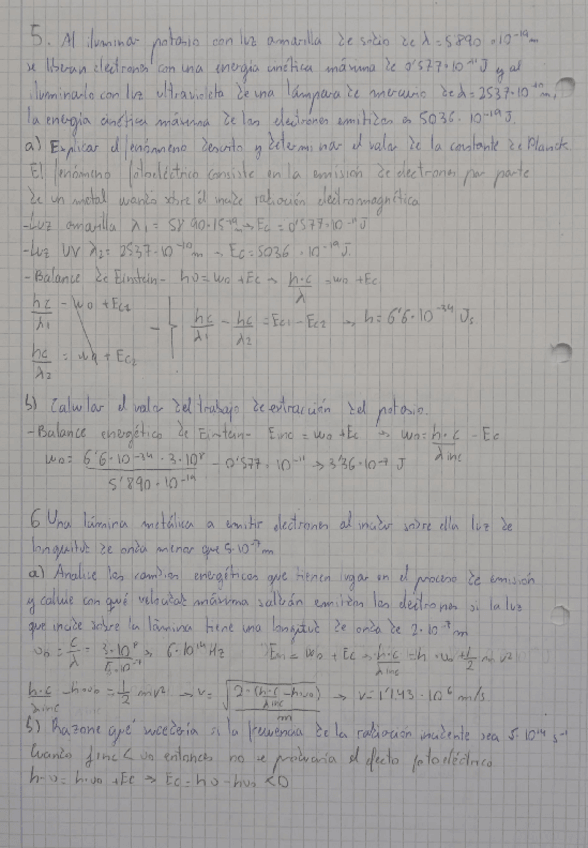 5. Al iluminar potasio con luz amarilla de sodio de λ=5890·10⁻¹⁰m
se liberan electrones con una energía cinética máxima de 0'577·10⁻¹⁹J y al
iluminarlo con luz ultravioleta de una lámpara de mercurio de λ=2537·10⁻¹⁰m,
la energía cinética máxima de los electrones emitidos es 5036·10⁻¹⁹J.
a) Explicar el fenómeno descrito y determinar el valor de la constante de Planck
El fenómeno fotoeléctrico consiste en la emisión de electrones por parte
de un metal cuando sobre él incide radiación electromagnética
-Luz amarilla λ₁= 5890·10⁻¹⁰ → Ec=0'577·10⁻¹⁹J
-Luz UV λ₂= 2537·10⁻¹⁰m → Ec=5036·10⁻¹⁹J
-Balance de Einstein- hυ=w₀+Ec → h·c/λ=w₀+Ec
hc/λ₁ - w₀+Ec₁ - { hc/λ₁ - hc/λ₂ = Ec₁-Ec₂ → h=6'6·10⁻³⁴ Js
hc/λ₂ = w₀+Ec₂
b) Calcular el valor del trabajo de extracción del potasio.
-Balance energético de Einstein- Einc=w₀+Ec → w₀=h·c/λinc - Ec
w₀= 6'6·10⁻³⁴·3·10⁸/5'890·10⁻¹⁹ - 0'577·10⁻¹⁹ → 3'36·10⁻¹⁹ J
6 Una lámina metálica a emitir electrones al incidir sobre ella luz de
longuitud de onda menor que 5·10⁻⁷m
a) Analice los cambios energéticos que tienen lugar en el proceso de emisión
y calcule con qué velocidad máxima saldrán emitidos los electrones si la luz
que incide sobre la lámina tiene una longitud de onda de 2·10⁻⁷m
υ₀=c/λ=3·10⁸/5·10⁻⁷ → 6·10¹⁴Hz Em=w₀+Ec → h·c/λinc=h·υ₀+1/2mv²
h·c/λinc - h·υ₀=1/2mv² → v=√(2·(h·c/λinc-hυ₀)/m) → v=1'143·10⁶m/s
b) Razone qué sucedería si la frecuencia de la radiación incidente sea 5·10¹⁴ s⁻¹
Cuando finc<υ₀ entonces no se produciría el efecto fotoeléctrico
h·υ=h·υ₀+Ec → Ec=hυ-hυ₀<0